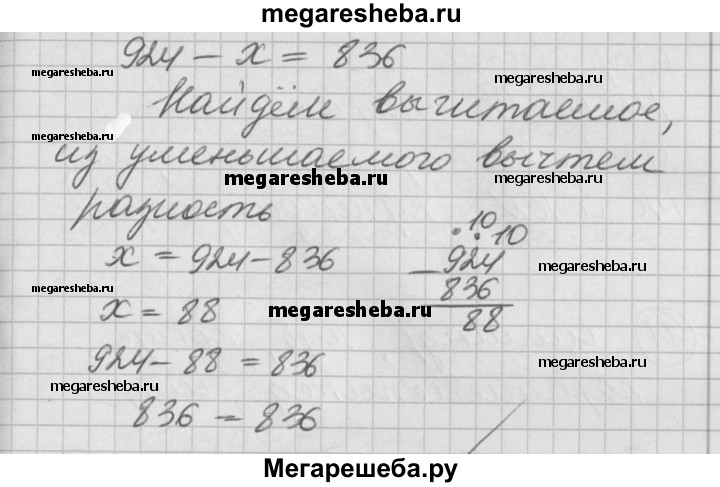 megaresheba.ru
924 - x = 836
megaresheba.ru
megaresheba.ru
Найдём вычитаемое,
megaresheba.ru
из уменьшаемого вычтем
megaresheba.ru
разность
10
10
x = 924 - 836
- 924
megaresheba.ru
836
megaresheba.ru
x = 88
megaresheba.ru
88
924 - 88 = 836
megaresheba.ru
megaresheba.ru
836 = 836
Мегарешеба.ру